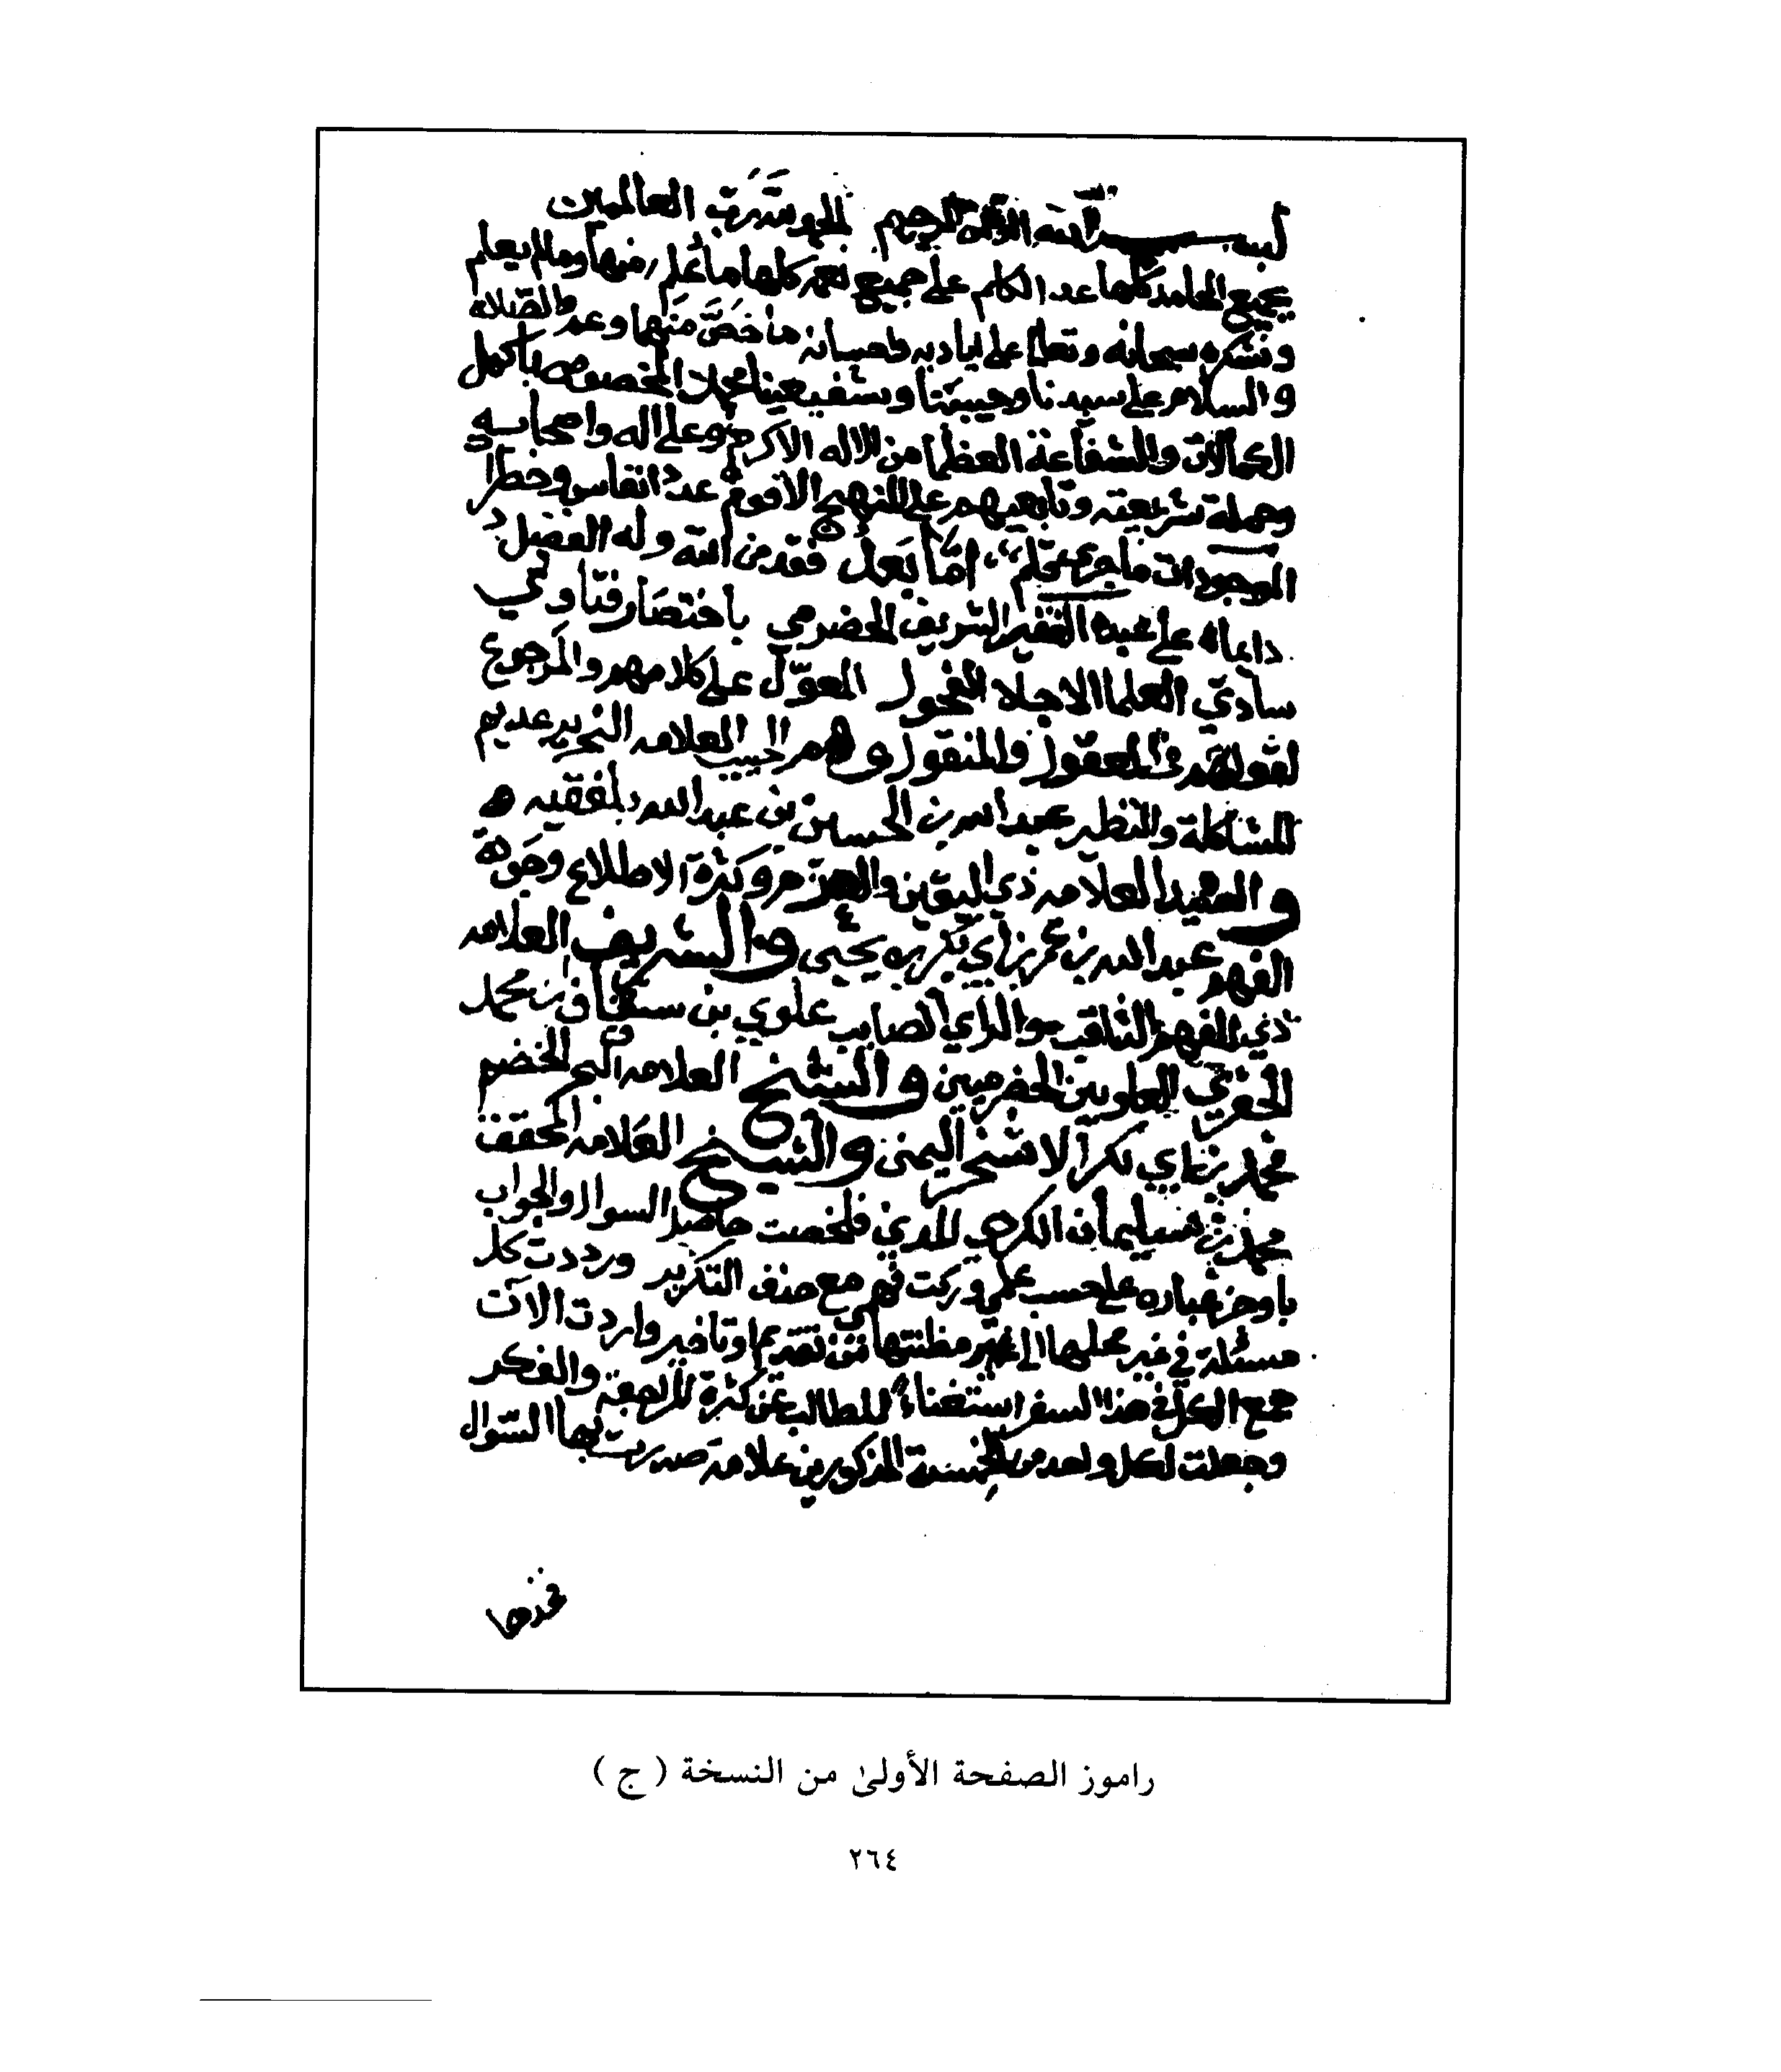 بسم الله الرحمن الرحيم الحمد لله رب العالمين
بجميع المحامد كلها عدد الكلم على جميع نعمه كلها ما علم منها وما لم يعلم
ونشكره سبحانه وتعالى على اياديه واحسانه ما خص منها وعم والصلاة
والسلام على سيدنا وحبيبنا وشفيعنا محمد المخصوص باكمل
الكمالات والشفاعة العظما من الاله الاكرم وعلى اله واصحابه
وحملة شريعته وتابعيهم على النهج الاقوم عدد انفاس وخطرا
الموجودات ما جرى قلم اما بعد فقد من الله وله الفضل
دايما على عبده الفقير الشريف الحضرمي باختصار فتاوي
ساداتي العلما الاجلاء الفحول المعول على كلامهم والمرجوع
لقولهم في المعقول والمنقول وهم الحبيب العلامه النحرير عديم
المشاكلة والنظير عبد الله بن الحسين بن عبد الله بلفقيه
والسيد العلامه ذي اليقين والعزم وكثرة الاطلاع وجودة
الفهم عبد الله بن عمر بن ابي بكر بن يحيى والشريف العلامه
ذي الفهم الثاقب والراي الصايب علوي بن سقاف بن محمد
الجفري العلويين الحضرميين والشيخ العلامه البحر الخضم
محمد بن ابي بكر الاشخر اليمني والشيخ العلامه المحقق
محمد بن سليمان الكردي المدني فلخصت حاصل السوال والجواب
باوجز عباره على حسب علمي وركت فهمي مع حذف التكرير ورددت كل
مسئلة في غير محلها الى مظنتها من تقديم او تاخير واردت الان
جمع الكل في هذا السفر استغناء للطالب عن كثرة المراجعة والفكر
وجعلت لكل واحد من الخمسة المذكورين علامة صدرت بها السوال
راموز الصفحة الأولىٰ من النسخة ( ج )
٢٦٤